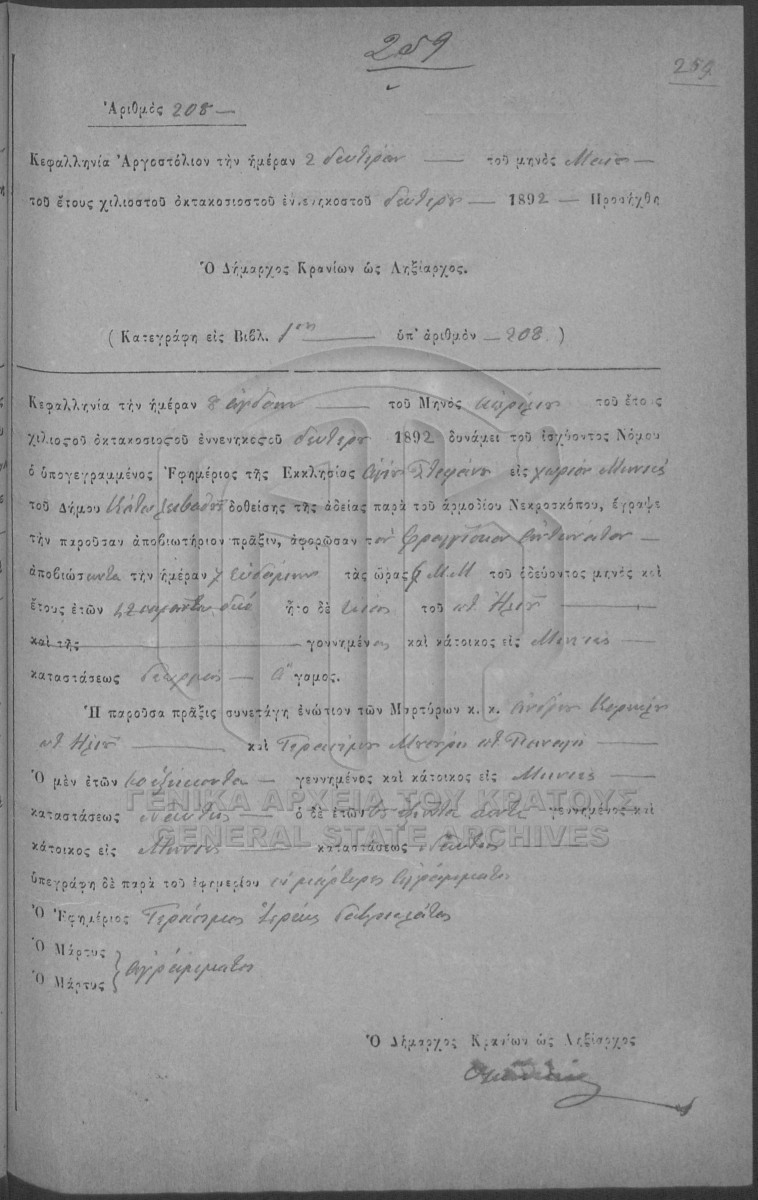 259
259
Ἀριθμὸς 208 —
Κεφαλληνία Ἀργοστόλιον τὴν ἡμέραν 2 δευτέραν — τοῦ μηνὸς Μαΐου —
τοῦ ἔτους χιλιοστοῦ ὀκτακοσιοστοῦ ἐννενηκοστοῦ δευτέρου — 1892 — Προσήχθη
Ὁ Δήμαρχος Κρανίων ὡς Ληξίαρχος.
( Κατεγράφη εἰς Βιβλ. 1ον — ὑπ' ἀριθμὸν — 208. )
Κεφαλληνία τὴν ἡμέραν 8 ὀγδόην — τοῦ Μηνὸς Ἀπριλίου τοῦ ἔτους
χιλιοςοῦ ὀκτακοσιοςοῦ ἐννενηκοςοῦ δευτέρου 1892 δυνάμει τοῦ ἰσχύοντος Νόμου
ὁ ὑπογεγραμμένος Ἐφημέριος τῆς Ἐκκλησίας Ἁγίου Στεφάνου εἰς χωρίον Μηνιές
τοῦ Δήμου δοθείσης τῆς ἀδείας παρὰ τοῦ ἁρμοδίου Νεκροσκόπου, ἔγραψε
τὴν παροῦσαν ἀποβιωτήριον πρᾶξιν, ἀφορῶσαν τὸν Φραγγίσκον —
ἀποβιώσαντα τὴν ἡμέραν 7 ἑβδόμην τὰς ὥρας 6 Μ Μ τοῦ ὁδεύοντος μηνὸς καὶ
ἔτους ἐτῶν 42 σαράντα δύο ἦτο δὲ υἱὸς τοῦ ποτ Ἠλία —
καὶ τῆς — γεννημένος καὶ κάτοικος εἰς Μηνιές —
καταστάσεως γεωργὸς — ἄγαμος.
Ἡ παροῦσα πρᾶξις συνετάγη ἐνώπιον τῶν Μαρτύρων κ. κ. Ἀνδρέου
ποτ Ἠλία — καὶ Γερασίμου ποτ Παναγῆ —
Ὁ μὲν ἐτῶν 60 ἑξῆκοντα — γεννημένος καὶ κάτοικος εἰς Μηνιές —
καταστάσεως Ναύτης — ὁ δὲ ἐτῶν γεννημένος καὶ
κάτοικος εἰς Μηνιές — καταστάσεως Ναύτης
ὑπεγράφη δὲ παρὰ τοῦ ἐφημερίου οἱ μάρτυρες ἀγράμματοι
Ὁ Ἐφημέριος Γεράσιμος Ἱερεὺς Γαβριελάτος
Ὁ Μάρτυς
Ὁ Μάρτυς } ἀγράμματοι
Ὁ Δήμαρχος Κρανίων ὡς Ληξίαρχος
ΓΕΝΙΚΑ ΑΡΧΕΙΑ ΤΟΥ ΚΡΑΤΟΥΣ
GENERAL STATE ARCHIVES